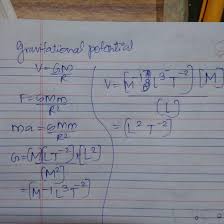 Gravitational potential
V = GM
R
F = GMm
R²
ma = GMm
R²
G = [M][LT⁻²][L²]
[M²]
= [M⁻¹L³T⁻²]
V = [M⁻¹L³T⁻²] [M]
[L]
= [L²T⁻²]